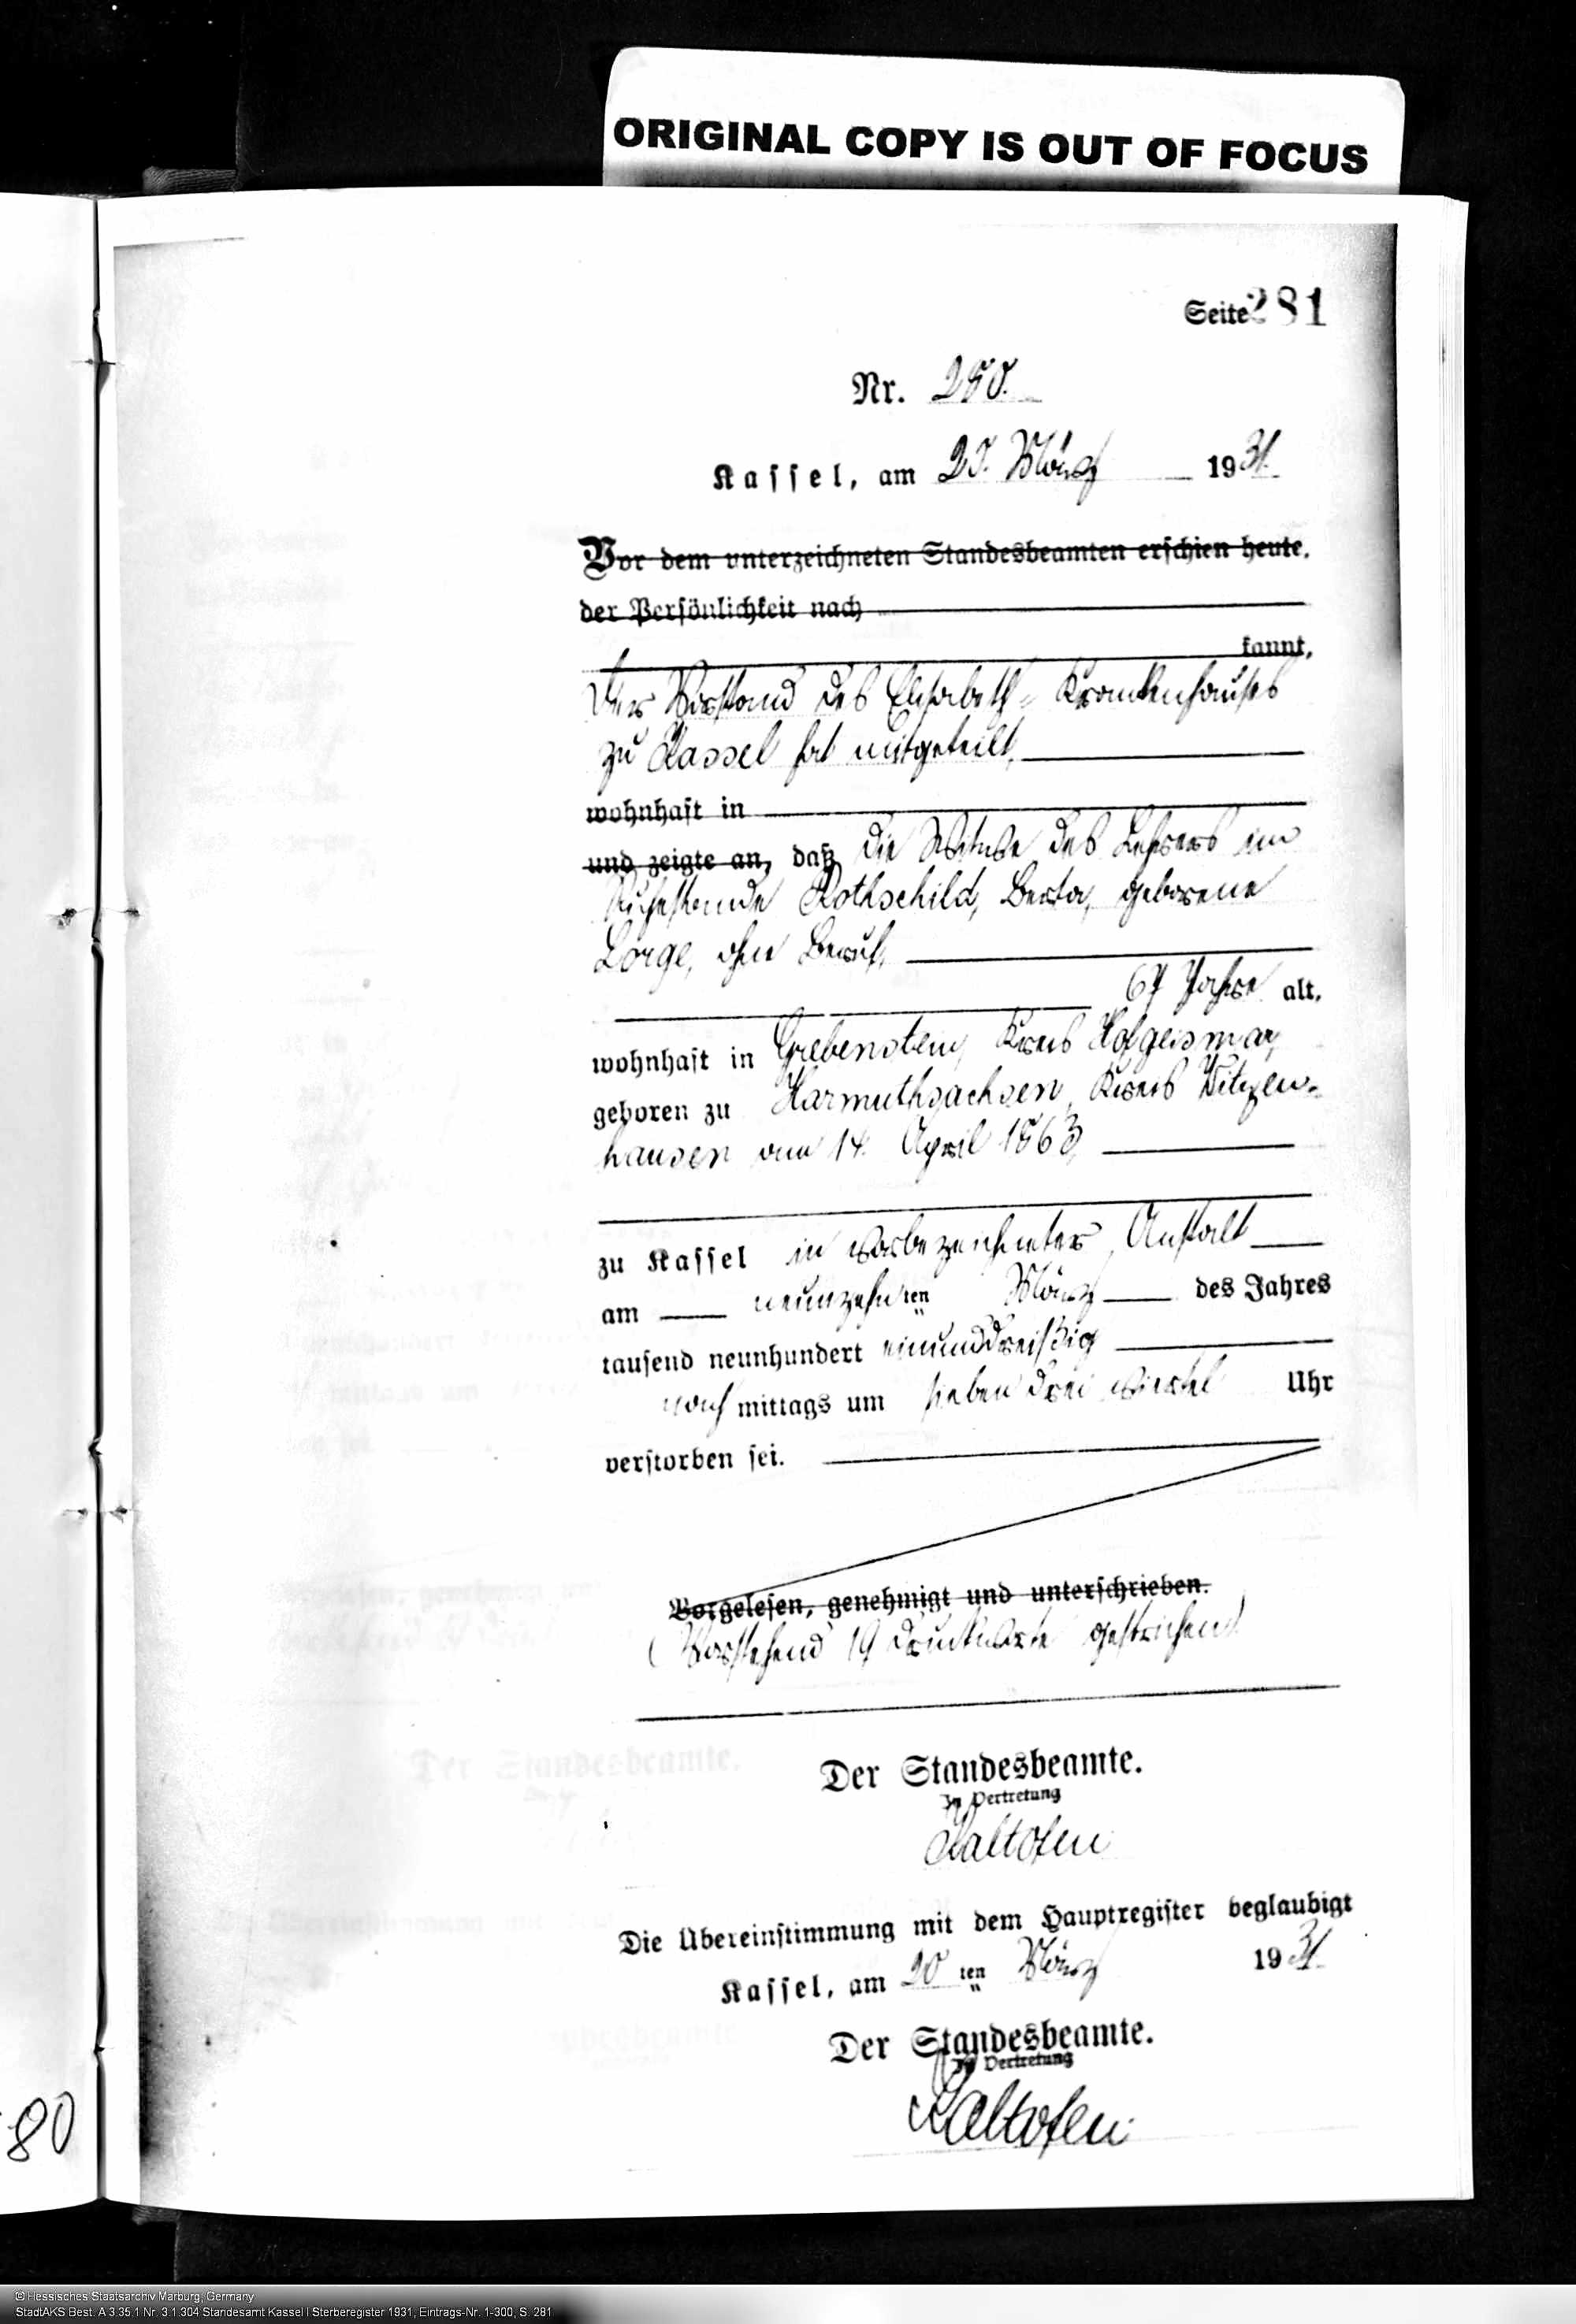 ORIGINAL COPY IS OUT OF FOCUS
Seite 281
Nr. 280.
Kassel, am 20. März 1931.
Vor dem unterzeichneten Standesbeamten erschien heute,
der Persönlichkeit nach
kannt,
Der Vorstand des Elisabeth-Krankenhauses
zu Kassel hat mitgeteilt,
wohnhaft in
und zeigte an, daß die Witwe des Lehrers im
Ruhestande Rothschild, Berta, geborene
Lorge, ohne Beruf,
67 Jahre alt,
wohnhaft in Grebenstein, Kreis Hofgeismar,
geboren zu Harmuthsachsen, Kreis Witzen-
hausen am 14. April 1863,
zu Kassel in vorbezeichneter Anstalt
am neunzehn ten März des Jahres
tausend neunhundert einunddreißig
nach mittags um sieben drei viertel Uhr
verstorben sei.
Vorgelesen, genehmigt und unterschrieben.
(Vorstehend 19 Druckworte gestrichen)
Der Standesbeamte.
In Vertretung
Kaltofen
Die Übereinstimmung mit dem Hauptregister beglaubigt
Kassel, am 20 ten März 1931
Der Standesbeamte.
In Vertretung
Kaltofen
80
© Hessisches Staatsarchiv Marburg, Germany
StadtAKS Best. A 3.35.1 Nr. 3.1.304 Standesamt Kassel I Sterberegister 1931, Eintrags-Nr. 1-300, S. 281